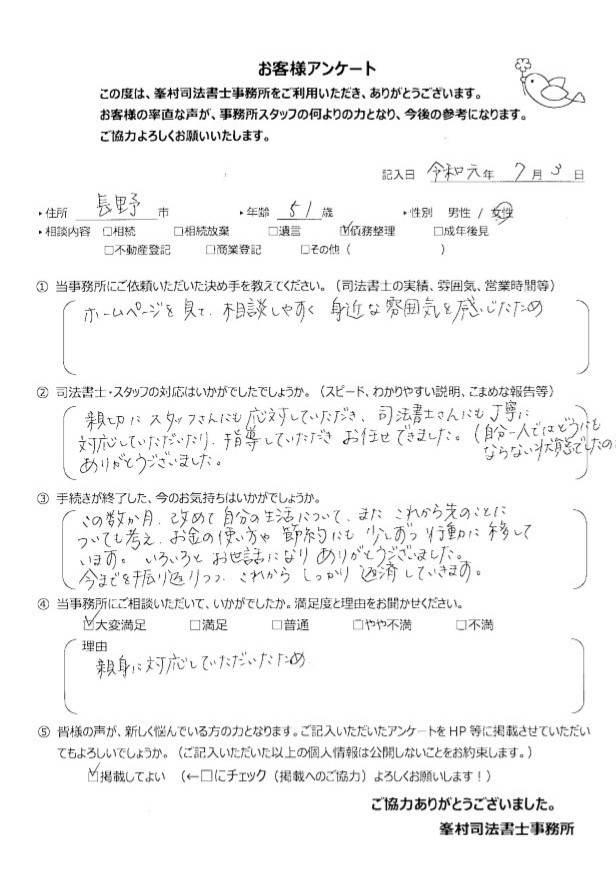 お客様アンケート
この度は、峯村司法書士事務所をご利用いただき、ありがとうございます。
お客様の率直な声が、事務所スタッフの何よりの力となり、今後の参考になります。
ご協力よろしくお願いいたします。
記入日 令和元年 7月 3日
▸住所 長野 市 ▸年齢 51 歳 ▸性別 男性 / 女性
▸相談内容 □相続 □相続放棄 □遺言 ☑債務整理 □成年後見
□不動産登記 □商業登記 □その他 ( )
① 当事務所にご依頼いただいた決め手を教えてください。(司法書士の実績、雰囲気、営業時間等)
ホームページを見て、相談しやすく 身近な雰囲気を感じたため
② 司法書士・スタッフの対応はいかがでしたでしょうか。(スピード、わかりやすい説明、こまめな報告等)
親切に スタッフさんにも 応対していただき、司法書士さんにも丁寧に
対応していただいたり、指導していただき お任せできました。(自分一人ではどうにも
ありがとうございました。 ならない状態でしたの
③ 手続きが終了した、今のお気持ちはいかがでしょうか。
この数か月、改めて自分の生活について、また これから先のことに
ついても考え、お金の使い方や 節約にも 少しずつ 行動に 移して
います。いろいろと お世話になり ありがとうございました。
今までを振り返りつつ、これから しっかり 返済していきます。
④ 当事務所にご相談いただいて、いかがでしたか。満足度と理由をお聞かせください。
☑大変満足 □満足 □普通 □やや不満 □不満
理由
親身に対応していただいたため
⑤ 皆様の声が、新しく悩んでいる方の力となります。ご記入いただいたアンケートをHP等に掲載させていただい
てもよろしいでしょうか。(ご記入いただいた以上の個人情報は公開しないことをお約束します。)
☑掲載してよい (←□にチェック(掲載へのご協力)よろしくお願いします!)
ご協力ありがとうございました。
峯村司法書士事務所